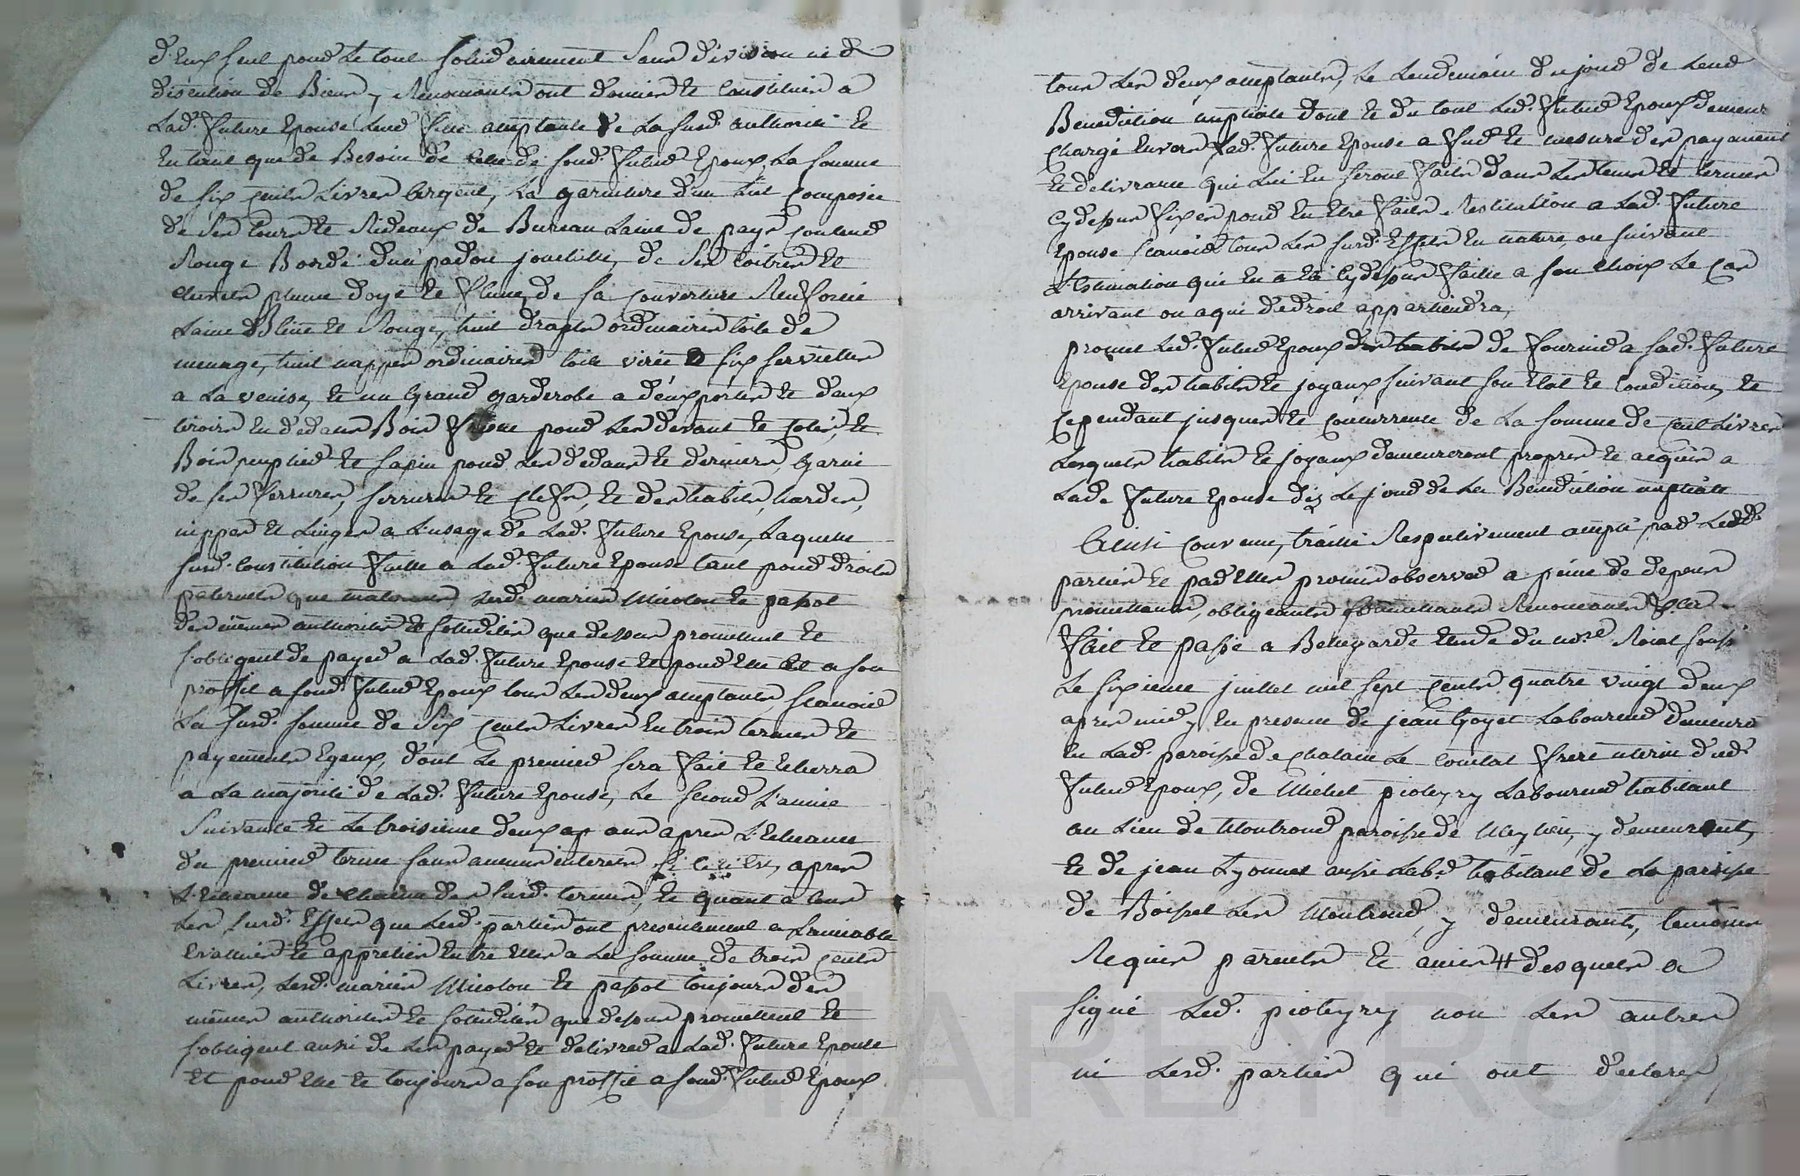 d'Eux seul pour le tout solidairement sans division ni
discution de Biens, Renonciants ont donnés et Constitués a
Lad. Future Epouse leur fille acceptante de la susd. authorité et
En tant que de Besoin de celle de sond. Futur Epoux La somme
de six cents Livres argent, La garniture d'un lit composée
de ses tours et Rideaux de Bureau Laine de pays couleur
Rouge Bordé d'un padou jonctille, de ses coitres et
chevets plume d'oye et de sa couverture
Laine Bleüe et Rouge, huit draps ordinaires toile de
menage, huit nappes ordinaires toile virée six serviettes
a La venise, et un Grand garderobe a deux portes et deux
tiroirs en dedans Bois pour les devant et Cotés, et
Bois peuplier et sapin pour les dedans et derriers, Garni
de ses ferrures, serrures et clefs, et des habits, hardes,
nippes et Linges a L'usage de Lad. Future Epouse, Laquelle
susd. Constitution faitte a Lad. Future Epouse tant pour droits
paternels que maternels, Lesd. mariés Micolon et passot
des mêmes authorités et solidités que dessus promettent et
s'obligent de payer a Lad. Future Epouse et pour Elle et a son
proffit a sond. Futur Epoux tous les deux acceptants scavoir
La susd. somme de Six Cents Livres En trois termes et
payements Egaux, dont Le premier sera fait et Echerra
a La majorité de Lad. Future Epouse, Le second L'année
Suivante et Le troisieme deux ans apres L'Echeance
du premier terme sans aucuns interets apres
L'Echeance de chacun des susd. termes, et quant a tous
Les susd. Effets que Lesd. parties ont presentement a L'amiable
Evalués et appretiés Entre Elles a La somme de trois cents
Livres, Lesd. mariés Micolon et passot toujours des
mêmes authorités et solidités que dessus promettent et
s'obligent aussi de Les payer et delivrer a Lad. Future Epouse
Et pour Elle et toujours a son proffit a sond. Futur Epoux
tous Les deux acceptants, Le Lendemain du jour de Leur
Benediction nuptiale dont et du tout Led. Futur Epoux demeure
chargé Envers Lad. Future Epouse a fur et mesure des payements
et delivrance qui Lui En seront faits dans Les tems et termes
Cy dessus fixés pour En etre faitte Restitution a Lad. Future
Epouse scavoir tous Les susd. Effets En nature ou suivant
L'Estimation qui En a eté Cy dessus faitte a son choix Le Cas
arrivant ou a qui de droit appartiendra,
promet Led. Futur Epoux de fournir a sad. Future
Epouse des habits et joyaux suivant son Etat et Condition, et
Cependant jusques et Concurrence de La somme de Cent Livres
Lesquels habits et joyaux demeureront propres et acquis a
Lade. Future Epouse dès Le jour de La Benediction nuptiale
Ainsi Convenu, traitté Respectivement accepté par Lesdtes.
parties et par Elles promis observer a peine de depens
promettants, obligeants soumettants Renonceants &ca
Fait et passé a Bellegarde Etude du nore. Roial sousse.
Le sixieme juillet mil sept cents quatre vingt deux
apres midy En presence de jean Goyet Laboureur demeurt
En Lad. paroisse de Chalain Le Comtal frere uterin dud.
Futur Epoux, de Michel pioteyry Laboureur habitant
au Lieu de Montrond paroisse de Meylieu, y demeurant,
Et de jean Lyonnet aussi Labr. habitant de La paroisse
de Boisset Les Montrond, y demeurant, temoins
Requis parents et amis # desquels a
signé Led. pioteyry non Les autres
ni Lesd. parties qui ont declaré
CHAREYRON